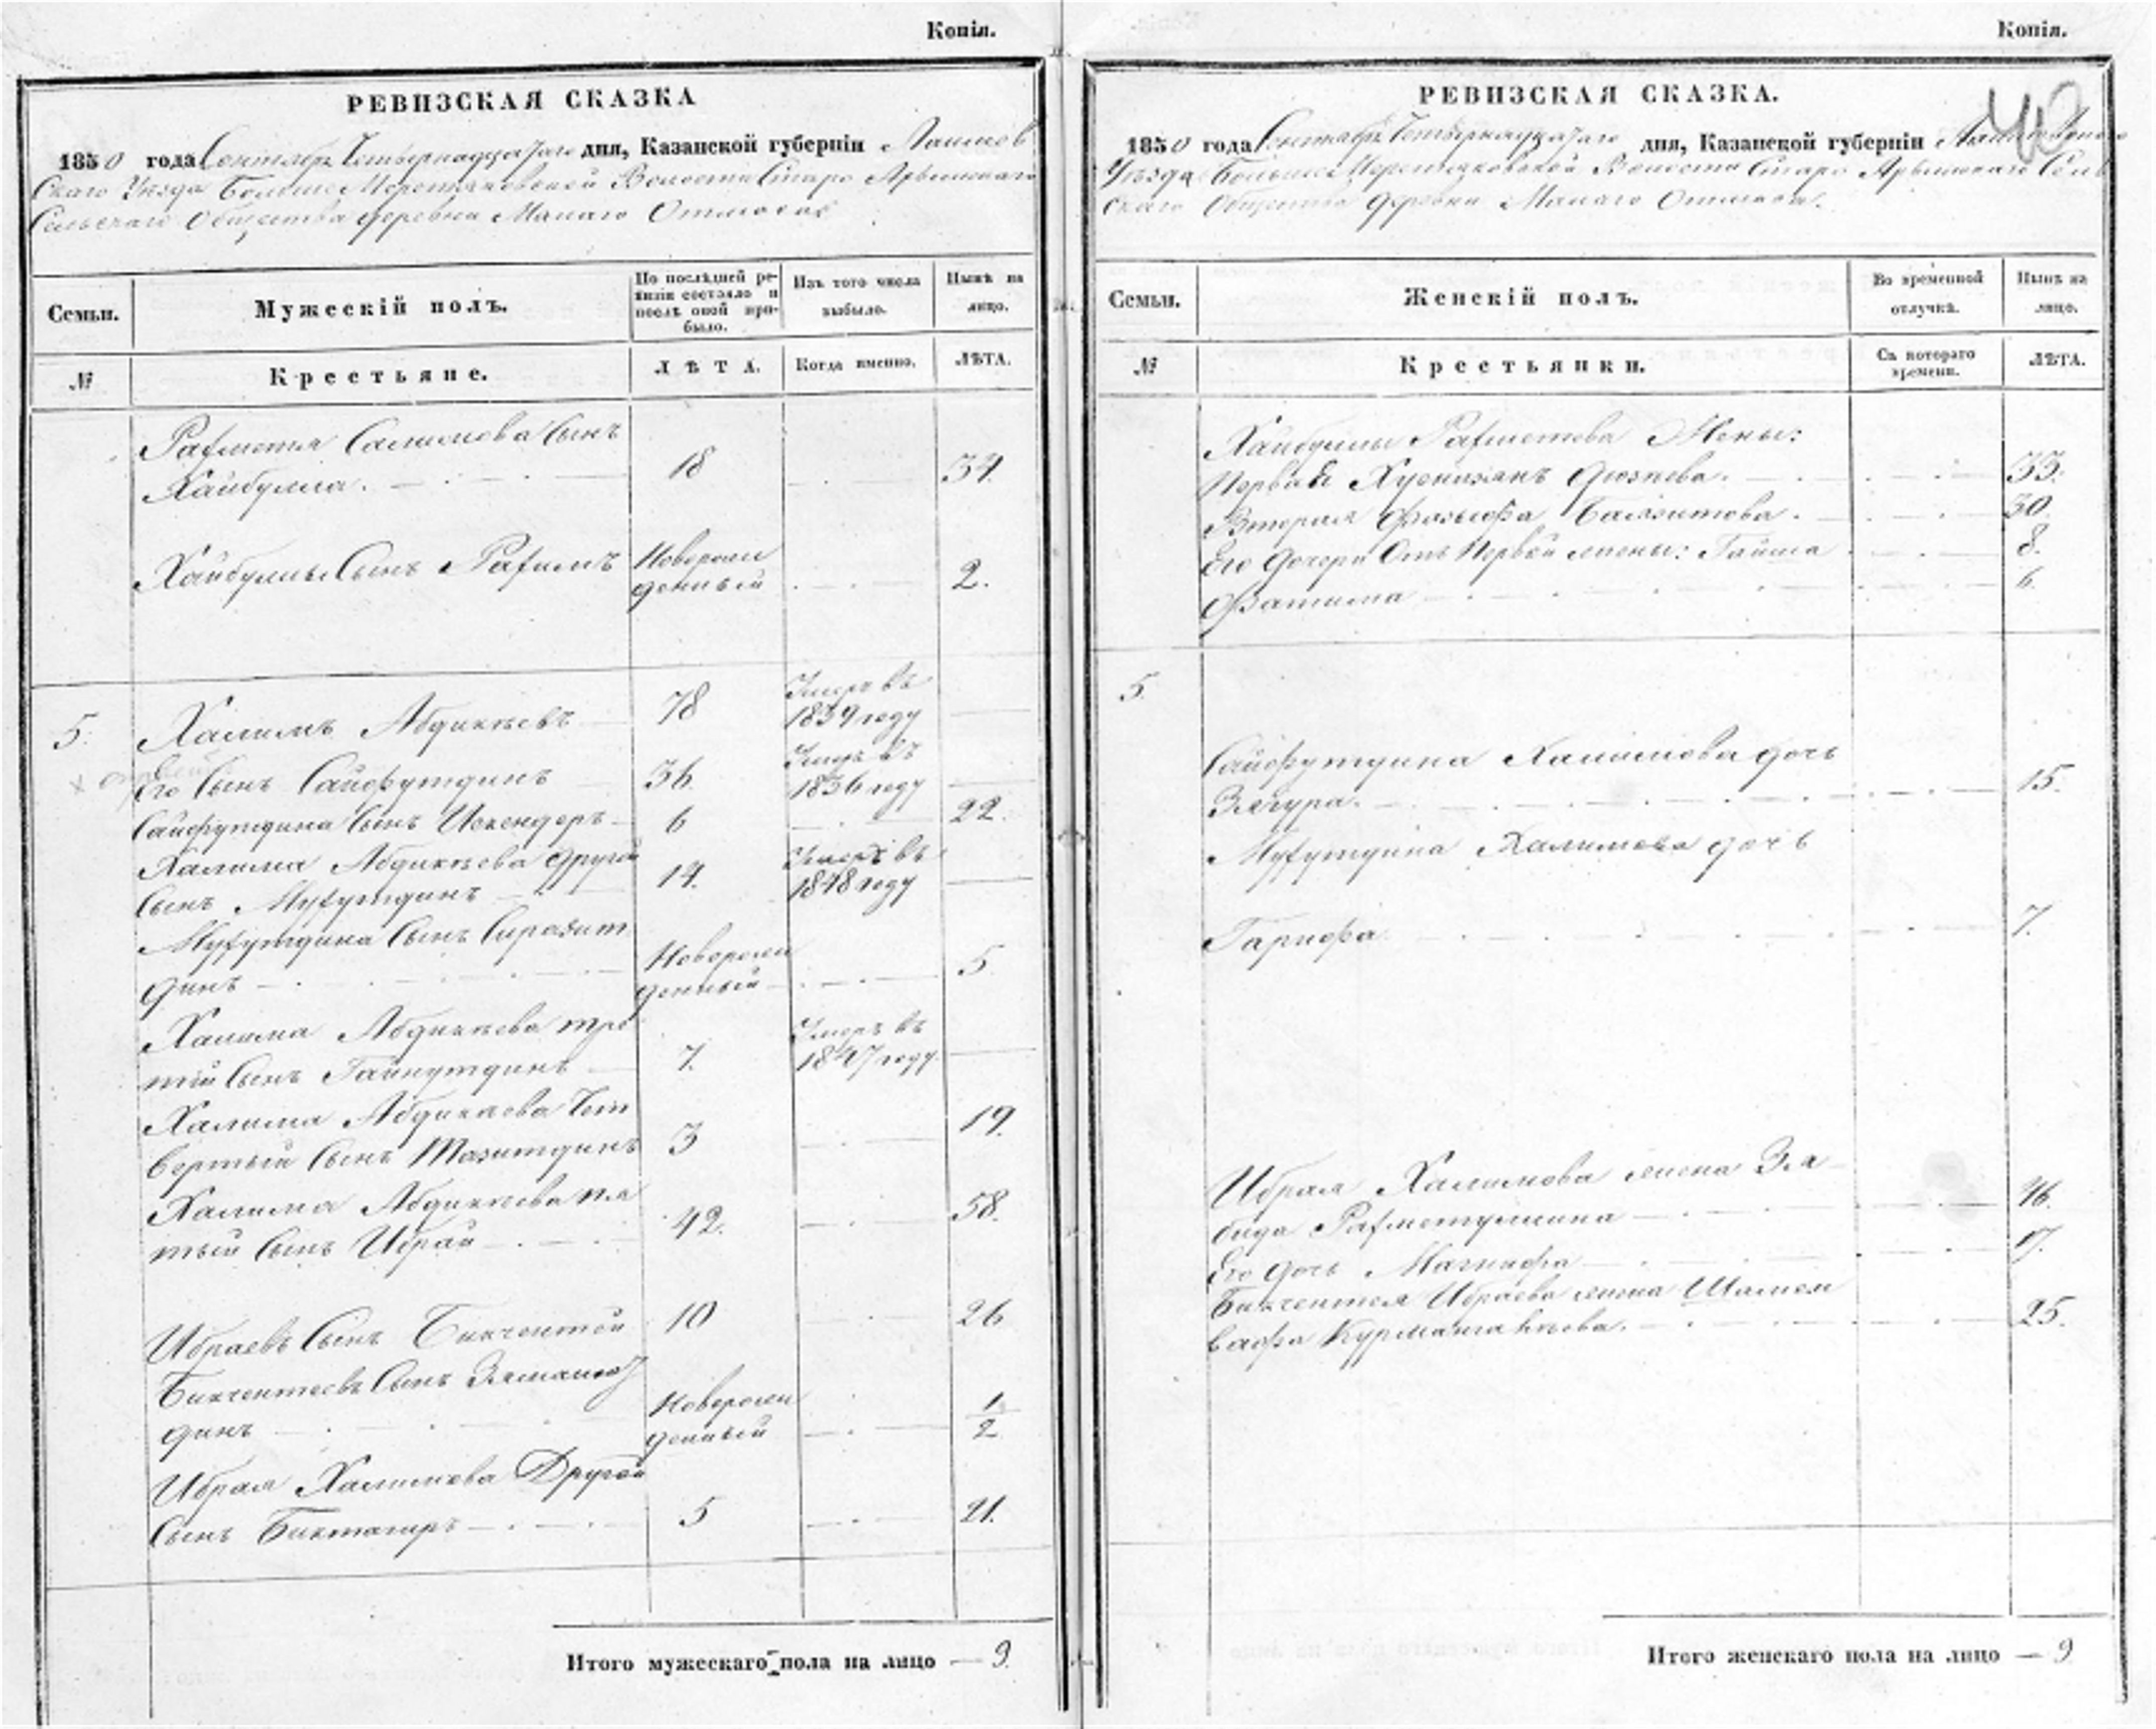 Копія.
РЕВИЗСКАЯ СКАЗКА
1850 года Сентября Четырнадцатаго дня, Казанской губерніи Лаишев
скаго Уѣзда Больше Меретяковской Волости Старо Арышскаго
Сельскаго Общества деревни Малаго Отмасов
Семьи.
Мужескій полъ.
По послѣдней ре-
визіи состояло и
послѣ оной при-
было.
Изъ того числа
выбыло.
Нынѣ на
лицо.
№
Крестьяне.
ЛѢТА.
Когда именно.
ЛѢТА.
Рахметя Салимова Сынъ
Хайбулла. 18 34.
Хайбуллы Сынъ Рахимъ Новорож
денный 2.
5. Халимъ Абдикѣевъ 78 Умеръ въ
1839 году
Его Сынъ Сайфутдинъ 36. Умеръ въ
1836 году
Сайфутдина Сынъ Искендеръ 6 22.
Халима Абдикѣева другой
Сынъ Мухутдинъ 14. Умеръ въ
1848 году
Мухутдина Сынъ Сиразит
динъ Новорож
денный 5
Халима Абдикѣева тре
тій Сынъ Гайнутдинъ 7. Умеръ въ
1847 году.
Халима Абдикѣева Чет
вертый Сынъ Тазитдинъ 3 19.
Халима Абдикѣева пя
тый Сынъ Ибрай 42. 58.
Ибраевъ Сынъ Бикчентей 10 26
Бикчентеевъ Сынъ Замалет
динъ Новорож
денный 1/2
Ибрая Халимова Другой
Сынъ Биктагиръ 5 21.
Итого мужескаго пола на лицо — 9.
Копія.
РЕВИЗСКАЯ СКАЗКА.
1850 года Сентября Четырнадцатаго дня, Казанской губерніи Лаишевскаго
Уѣзда Больше Меретяковской Волости Старо Арышскаго Сель
скаго Общества деревни Малаго Отмаса.
Семьи.
Женскій полъ.
Во временной
отлучкѣ.
Нынѣ на
лицо.
№
Крестьянки.
Съ котораго
времени.
ЛѢТА.
Хайбуллы Рахметева Жены:
Первая 33.
Вторая Баязитова. 30.
Его дочери Отъ Первой жены: Гайша 8.
Фатима 6.
5.
Сайфутдина Халимова дочь
Зягура. 15.
Мухутдина Халимова дочь
Гарифа 7.
Ибрая Халимова жена Зя
бида Рахметуллина 46.
Его дочь Магинфа 17.
Бикчентея Ибраева жена Шамси
вафа Курмангалѣева. 25.
Итого женскаго пола на лицо — 9